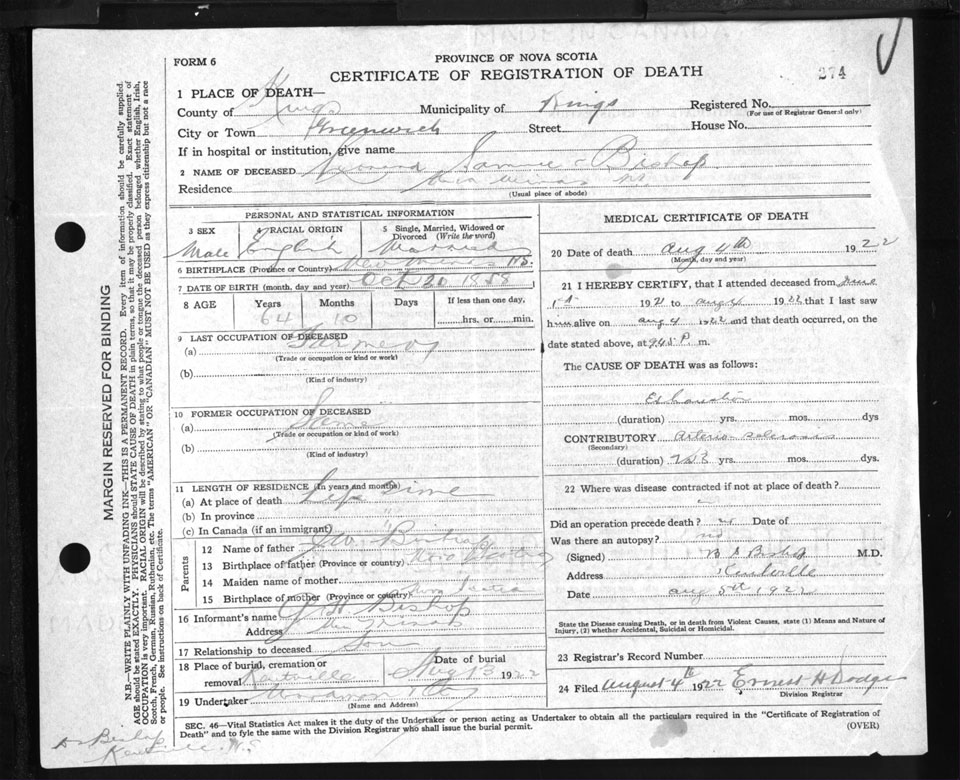 FORM 6
PROVINCE OF NOVA SCOTIA
CERTIFICATE OF REGISTRATION OF DEATH
274
1 PLACE OF DEATH—
County of Kings Municipality of Kings Registered No.
(For use of Registrar General only)
City or Town Greenwich Street House No.
If in hospital or institution, give name
2 NAME OF DECEASED Samuel Bishop
Residence New Minas NS
(Usual place of abode)
PERSONAL AND STATISTICAL INFORMATION
3 SEX 4 RACIAL ORIGIN 5 Single, Married, Widowed or Divorced (Write the word)
Male English Married
6 BIRTHPLACE (Province or Country) New Minas NS.
7 DATE OF BIRTH (month, day and year) Oct 20 1858
8 AGE Years Months Days If less than one day,
64 10 hrs. or min.
9 LAST OCCUPATION OF DECEASED
(a) Farmer
(Trade or occupation or kind or work)
(b)
(Kind of industry)
10 FORMER OCCUPATION OF DECEASED
(a) Same
(Trade or occupation or kind of work)
(b)
(Kind of industry)
11 LENGTH OF RESIDENCE (In years and months)
(a) At place of death Life Time
(b) In province "
(c) In Canada (if an immigrant) "
Parents
12 Name of father Bishop
13 Birthplace of father (Province or country) Nova Scotia
14 Maiden name of mother
15 Birthplace of mother (Province or country) Nova Scotia
16 Informant's name Bishop
Address New Minas
17 Relationship to deceased Son
18 Place of burial, cremation or removal Kentville Date of burial Aug 13 1922
19 Undertaker
(Name and Address)
MEDICAL CERTIFICATE OF DEATH
20 Date of death Aug 4th 1922
(Month, day and year)
21 I HEREBY CERTIFY, that I attended deceased from June
1st 1921 to Aug 4 1922, that I last saw
him alive on Aug 4 1922 and that death occurred, on
date stated above, at 9.45 P. m.
The CAUSE OF DEATH was as follows:
Exhaustion
(duration) yrs. mos. dys
CONTRIBUTORY Arterio sclerosis
(Secondary)
(duration) 2 or 3 yrs. mos. dys.
22 Where was disease contracted if not at place of death?
Did an operation precede death? no Date of
Was there an autopsy? no
(Signed) Bishop M.D.
Address Kentville
Date Aug 5th 1922
State the Disease causing Death, or in death from Violent Causes, state (1) Means and Nature of Injury, (2) whether Accidental, Suicidal or Homicidal.
23 Registrar's Record Number
24 Filed August 4th 1922 Ernest H Dodge
Division Registrar
SEC. 46—Vital Statistics Act makes it the duty of the Undertaker or person acting as Undertaker to obtain all the particulars required in the "Certificate of Registration of
Death" and to fyle the same with the Division Registrar who shall issue the burial permit. (OVER)
Dr Bishop
Kentville N.S
MARGIN RESERVED FOR BINDING
N.B.—WRITE PLAINLY WITH UNFADING INK—THIS IS A PERMANENT RECORD. Every item of information should be carefully supplied.
AGE should be stated EXACTLY. PHYSICIANS should STATE CAUSE OF DEATH in plain terms, so that it may be properly classified. Exact statement of
OCCUPATION is very important. RACIAL ORIGIN will be described by stating to what people or tongue the deceased person belonged whether English, Irish,
Scotch, French, German, Russian, Ruthenian, etc. The terms "AMERICAN" OR "CANADIAN" MUST NOT BE USED as they express citizenship but not a race
or people. See instructions on back of Certificate.